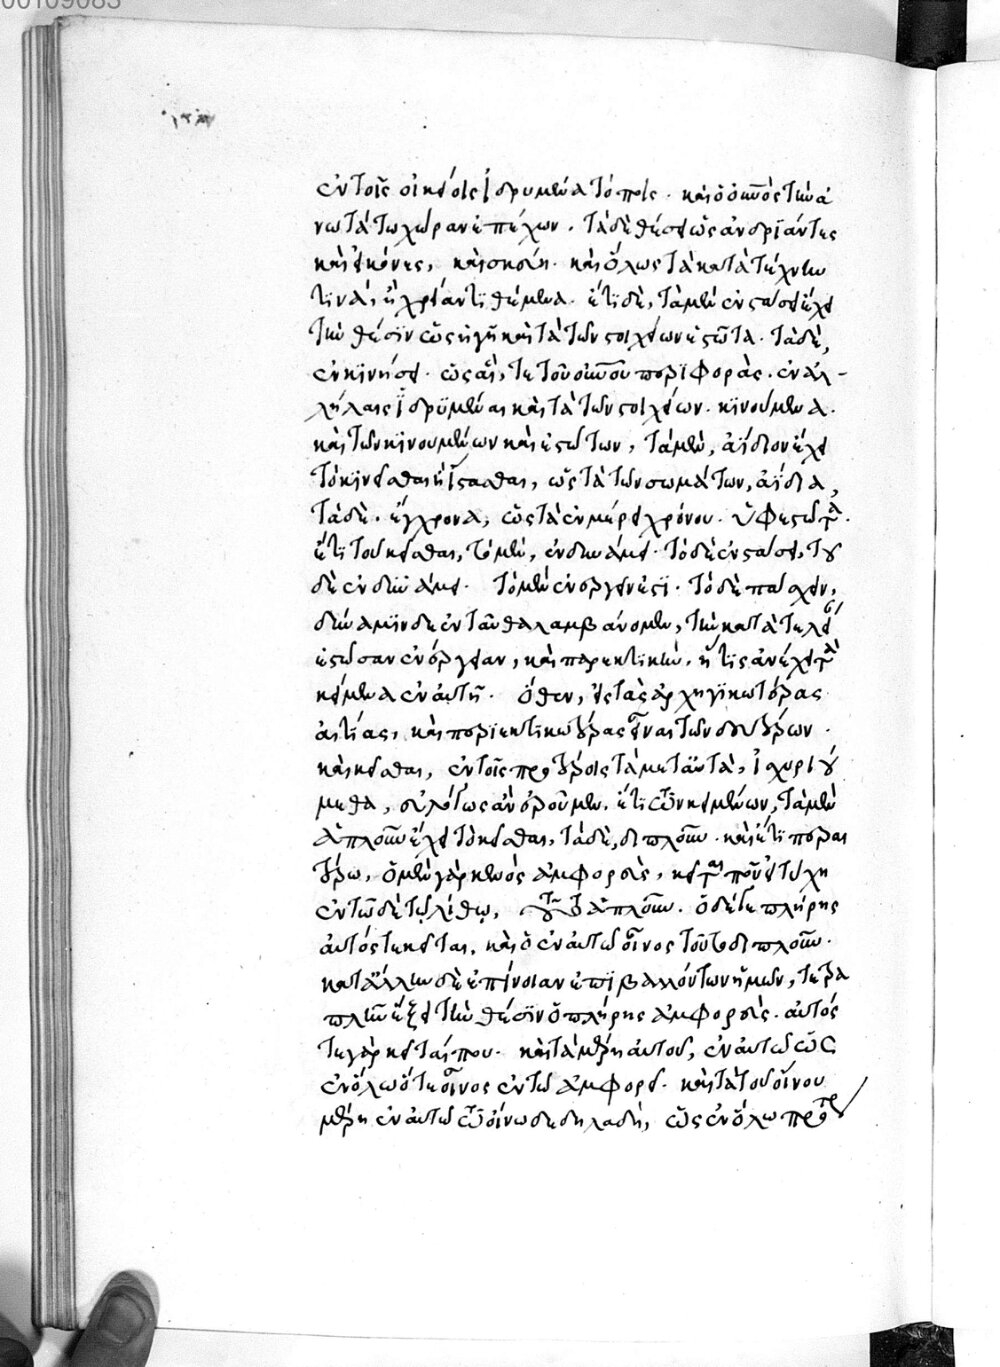 00109083
ἐν τοῖς οἰκείοις ἱδρυμένα τόποις. καὶ ὁ οὐρανὸς τὴν ἀ
νωτάτω χώραν ἐπέχων. τὰ δὲ θέσει ὡς ἀνδριάντες
καὶ εἰκόνες, καὶ σκεύη. καὶ ὅλως τὰ κατὰ τέχνην
τινά, ἢ χρείαν τιθέμενα. ἔτι δὲ, τὰ μὲν ἐν στάσει ἔχει
τὴν θέσιν ὡς ἡ γῆ καὶ τὰ τῶν στοιχείων ἑστῶτα. τὰ δὲ,
ἐν κινήσει. ὡς αἵ, τε τοῦ οὐρανοῦ περιφοραὶ. ἐν ἀλ-
λήλαις ἱδρυμέναι καὶ τὰ τῶν στοιχείων. κινούμενα.
καὶ τῶν κινουμένων καὶ ἑστώτων, τὰ μὲν, ἀΐδιον ἔχει
τὸ κινεῖσθαι ἢ ἵστασθαι, ὡς τὰ τῶν σωμάτων, ἀΐδια,
τὰ δὲ. ἔγχρονα, ὡς τὰ ἐν μέρει χρόνου. ὑφεστῶτα.
ἔτι τοῦ κεῖσθαι, τὸ μὲν, ἐν δυνάμει. τὸ δὲ ἐν στάσει, τοῦ
δὲ ἐν δυνάμει. τὸ μὲν ἐνεργεῖν ἐστι. τὸ δὲ πάσχειν,
δύναμιν δὲ ἐνταῦθα λαμβάνομεν, τὴν κατὰ τελεί
ἑστῶσαν ἐνέργειαν, καὶ παρεκτικὴν, ἥτις ἀνέχει τὰ
κείμενα ἐν αὐτῇ. ὅθεν, εἰς τὰς ἀρχηγικωτέρας
αἰτίας, καὶ περιεκτικωτέρας εἶναι τῶν δευτέρων.
καὶ κεῖσθαι, ἐν τοῖς προτέροις τὰ μετ' αὐτὰ, ἰσχυριού
μεθα, εὐλόγως ἂν ἐροῦμεν. ἔτι τῶν κειμένων, τὰ μὲν
ἁπλοῦν ἔχει τὸ κεῖσθαι, τὰ δὲ, διπλοῦν. καὶ ἔτι περαι
τέρω, ὁ μὲν γὰρ κενὸς ἀμφορεὺς, κεῖται ποῦ εἰ τύχῃ
ἐν τῶδε τῷ λίθῳ, τοῦτο ἁπλοῦν. ὁ δέ γε πλήρης
αὐτός τε κεῖται, καὶ ὁ ἐν αὐτῷ οἶνος τοῦτο διπλοῦν.
κατ' ἄλλην δὲ ἐπίνοιαν ἐπιβαλλόντων ἡμῶν, τετρα
πλῆν ἕξει τὴν θέσιν ὁ πλήρης ἀμφορεὺς. αὐτός
τε γὰρ κεῖταί που. καὶ τὰ μέρη αὐτοῦ, ἐν αὐτῷ ὡς
ἐν ὅλω ὅ τε οἶνος ἐν τῷ ἀμφορεῖ. καὶ τὰ τοῦ οἴνου
μέρη ἐν αὐτῷ τῷ οἴνω δὲ δηλαδή, ὡς ἐν ὅλω προτερ